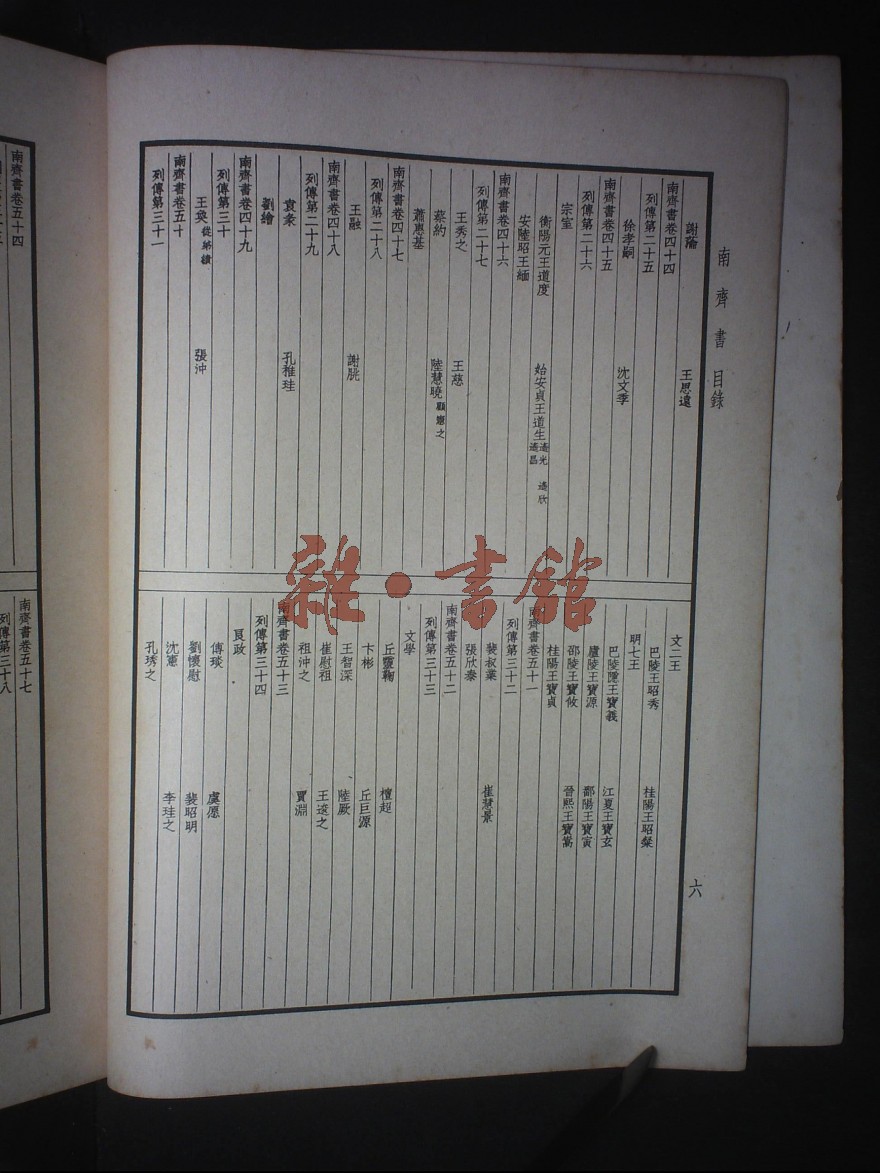 南齊書目錄
六
謝瀹 王思遠
南齊書卷四十四
列傳第二十五
徐孝嗣 沈文季
南齊書卷四十五
列傳第二十六
宗室
衡陽元王道度 始安貞王道生 遙光 遙欣 遙昌
安陸昭王緬
南齊書卷四十六
列傳第二十七
王秀之 王慈
蔡約 陸慧曉 顧憲之
蕭惠基
南齊書卷四十七
列傳第二十八
王融 謝朓
南齊書卷四十八
列傳第二十九
袁彖 孔稚珪
劉繪
南齊書卷四十九
列傳第三十
王奐 從弟繢 張沖
南齊書卷五十
列傳第三十一
文二王
巴陵王昭秀 桂陽王昭粲
明七王
巴陵隱王寶義 江夏王寶玄
廬陵王寶源 鄱陽王寶寅
邵陵王寶攸 晉熙王寶嵩
桂陽王寶貞
南齊書卷五十一
列傳第三十二
裴叔業 崔慧景
張欣泰
南齊書卷五十二
列傳第三十三
文學
丘靈鞠 檀超
卞彬 丘巨源
王智深 陸厥
崔慰祖 王逡之
祖沖之 賈淵
南齊書卷五十三
列傳第三十四
良政
傅琰 虞愿
劉懷慰 裴昭明
沈憲 李珪之
孔琇之
南齊書卷五十四
南齊書卷五十七
列傳第三十八
雜·書館